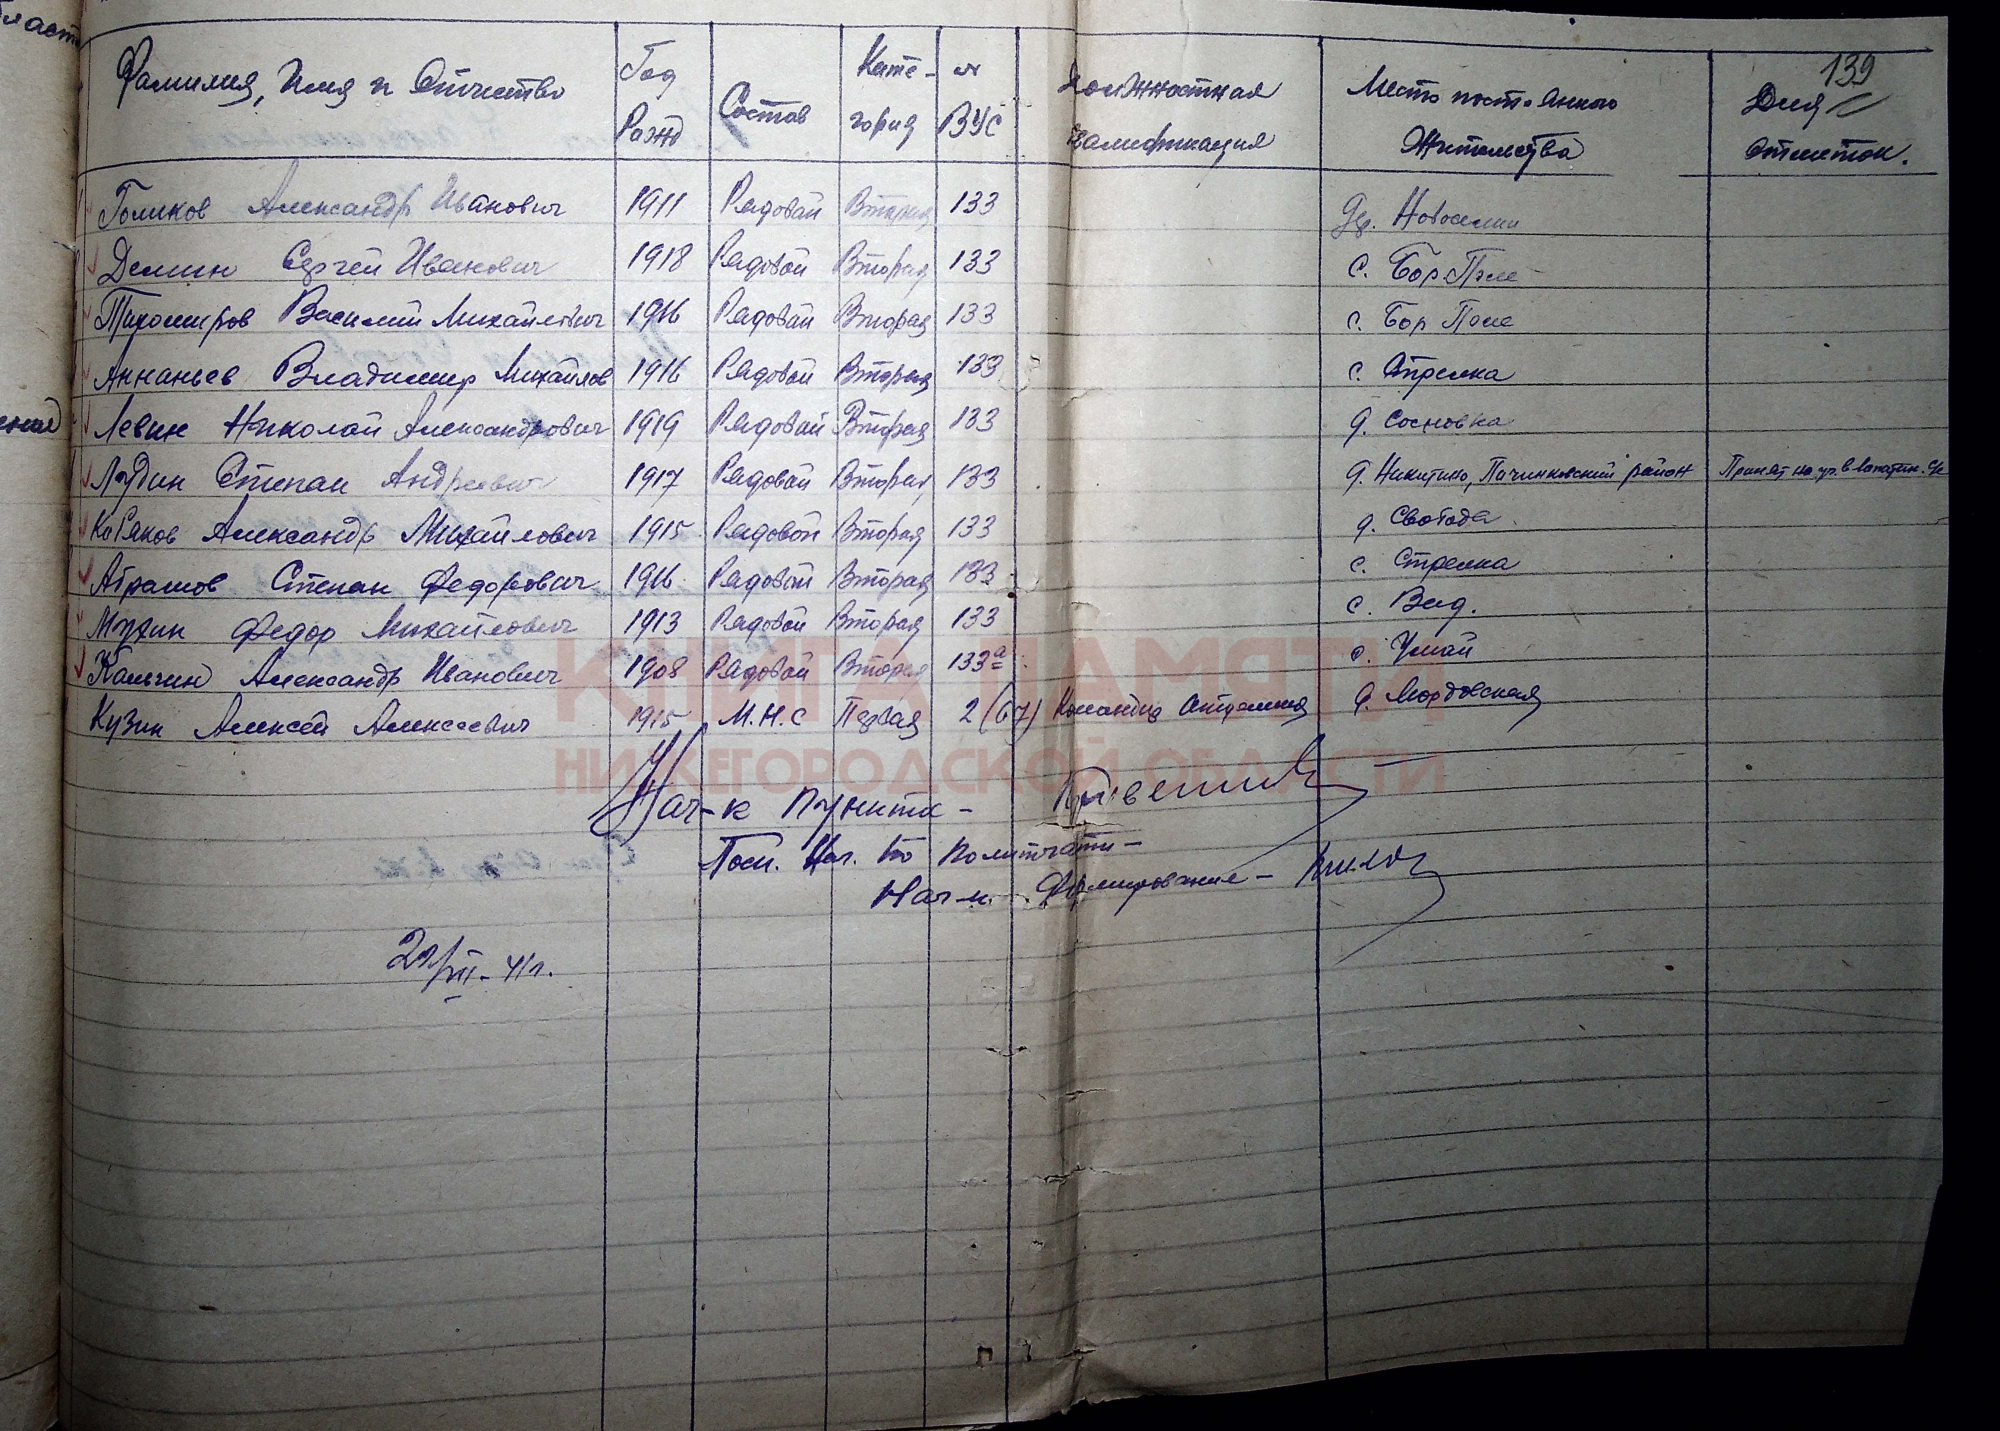 139
Фамилия, Имя и Отчество Год Рожд Состав Кате-гория № ВУС Должностная квалификация Место постоянного Жительства Для отметок.
Голиков Александр Иванович 1911 Рядовой Вторая 133 Др. Новоселки
Демин Сергей Иванович 1918 Рядовой Вторая 133 с. Бор. Поле
Тихомиров Василий Михайлович 1916 Рядовой Вторая 133 с. Бор Поле
Ананьев Владимир Михайлов 1916 Рядовой Вторая 133 с. Стрелка
Левин Николай Александрович 1919 Рядовой Вторая 133 д. Сосновка
Степан Андреевич 1917 Рядовой Вторая 133 д. Никитино, Починковский район Принят на уч. в
Александр Михайлович 1915 Рядовой Вторая 133 д. Свобода
Абрамов Степан Федорович 1916 Рядовой Вторая 133 с. Стрелка
Мухин Федор Михайлович 1913 Рядовой Вторая 133 с. Вад.
Александр Иванович 1908 Рядовой Вторая 133а с. Умай
Кузин Алексей Алексеевич 1915 М.Н.С Первая 2 (67) Командир Отделения д. Мордовская
КНИГА ПАМЯТИ
НИЖЕГОРОДСКОЙ ОБЛАСТИ
Нач-к пункта -
Нач. по политчасти -
Формирование -
41г.